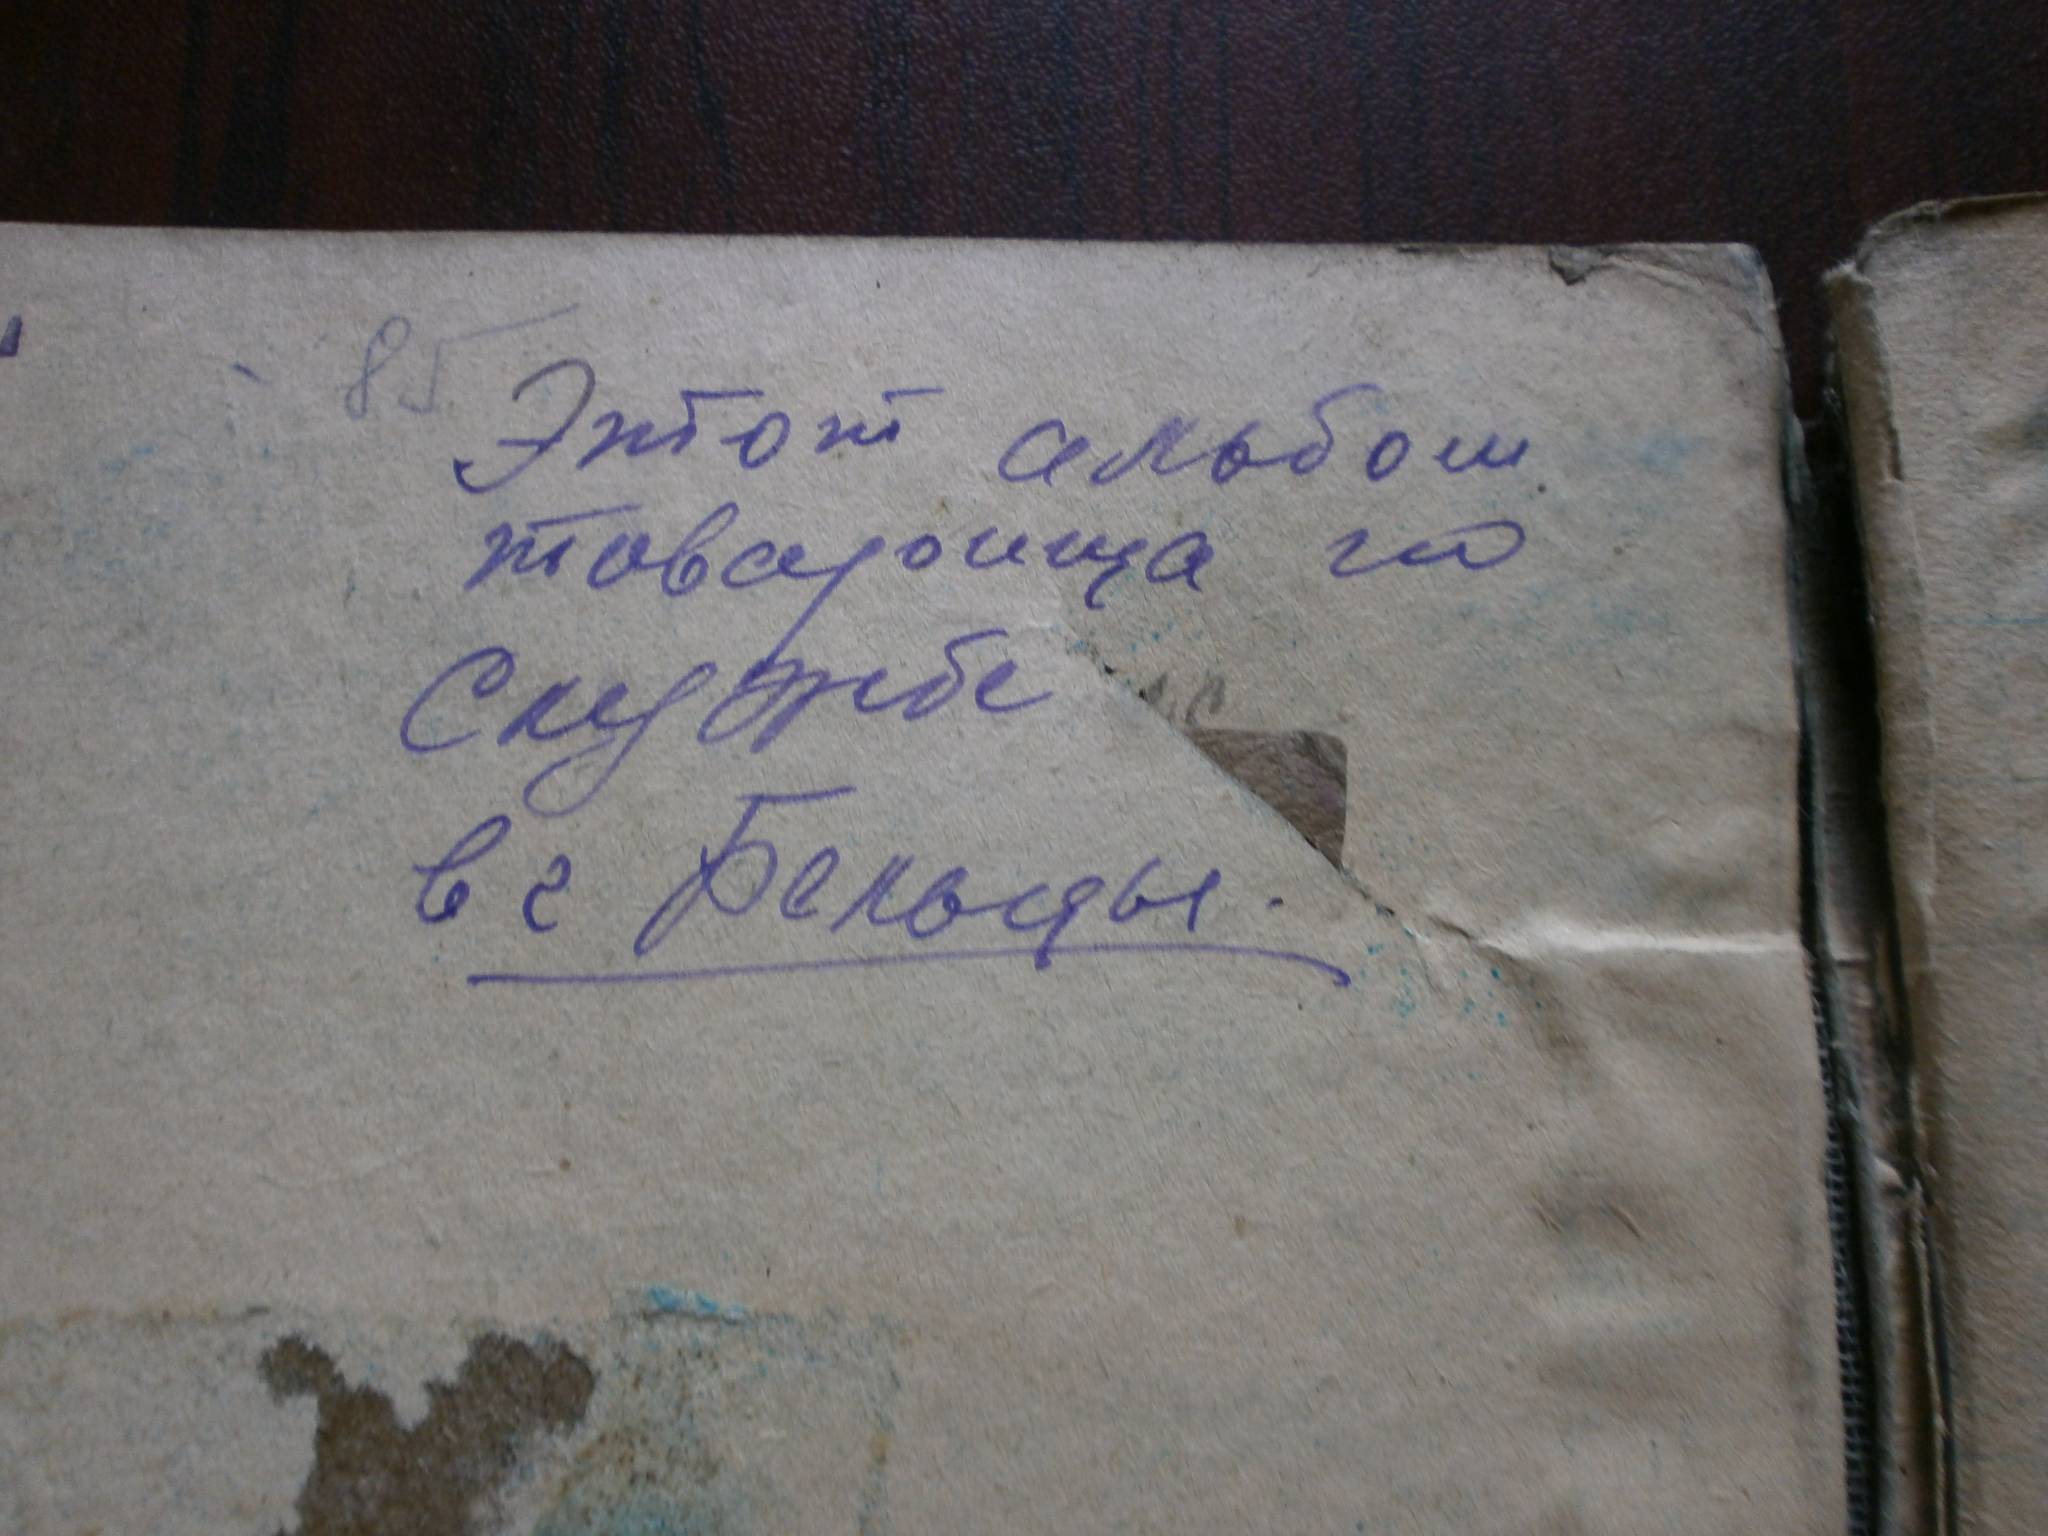 85
Этот альбом
товарища по
Службе
в г Бельцы.